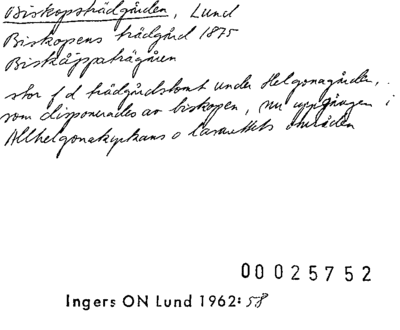 Biskopsträdgården, Lund
Biskopens trädgård 1875
Biskåppaträgåren
stor f d trädgårdstomt under Helgonagården,
som disponerades av biskopen, nu uppgången i
Allhelgonakyrkans o lasarettets områden
00025752
Ingers ON Lund 1962: 58